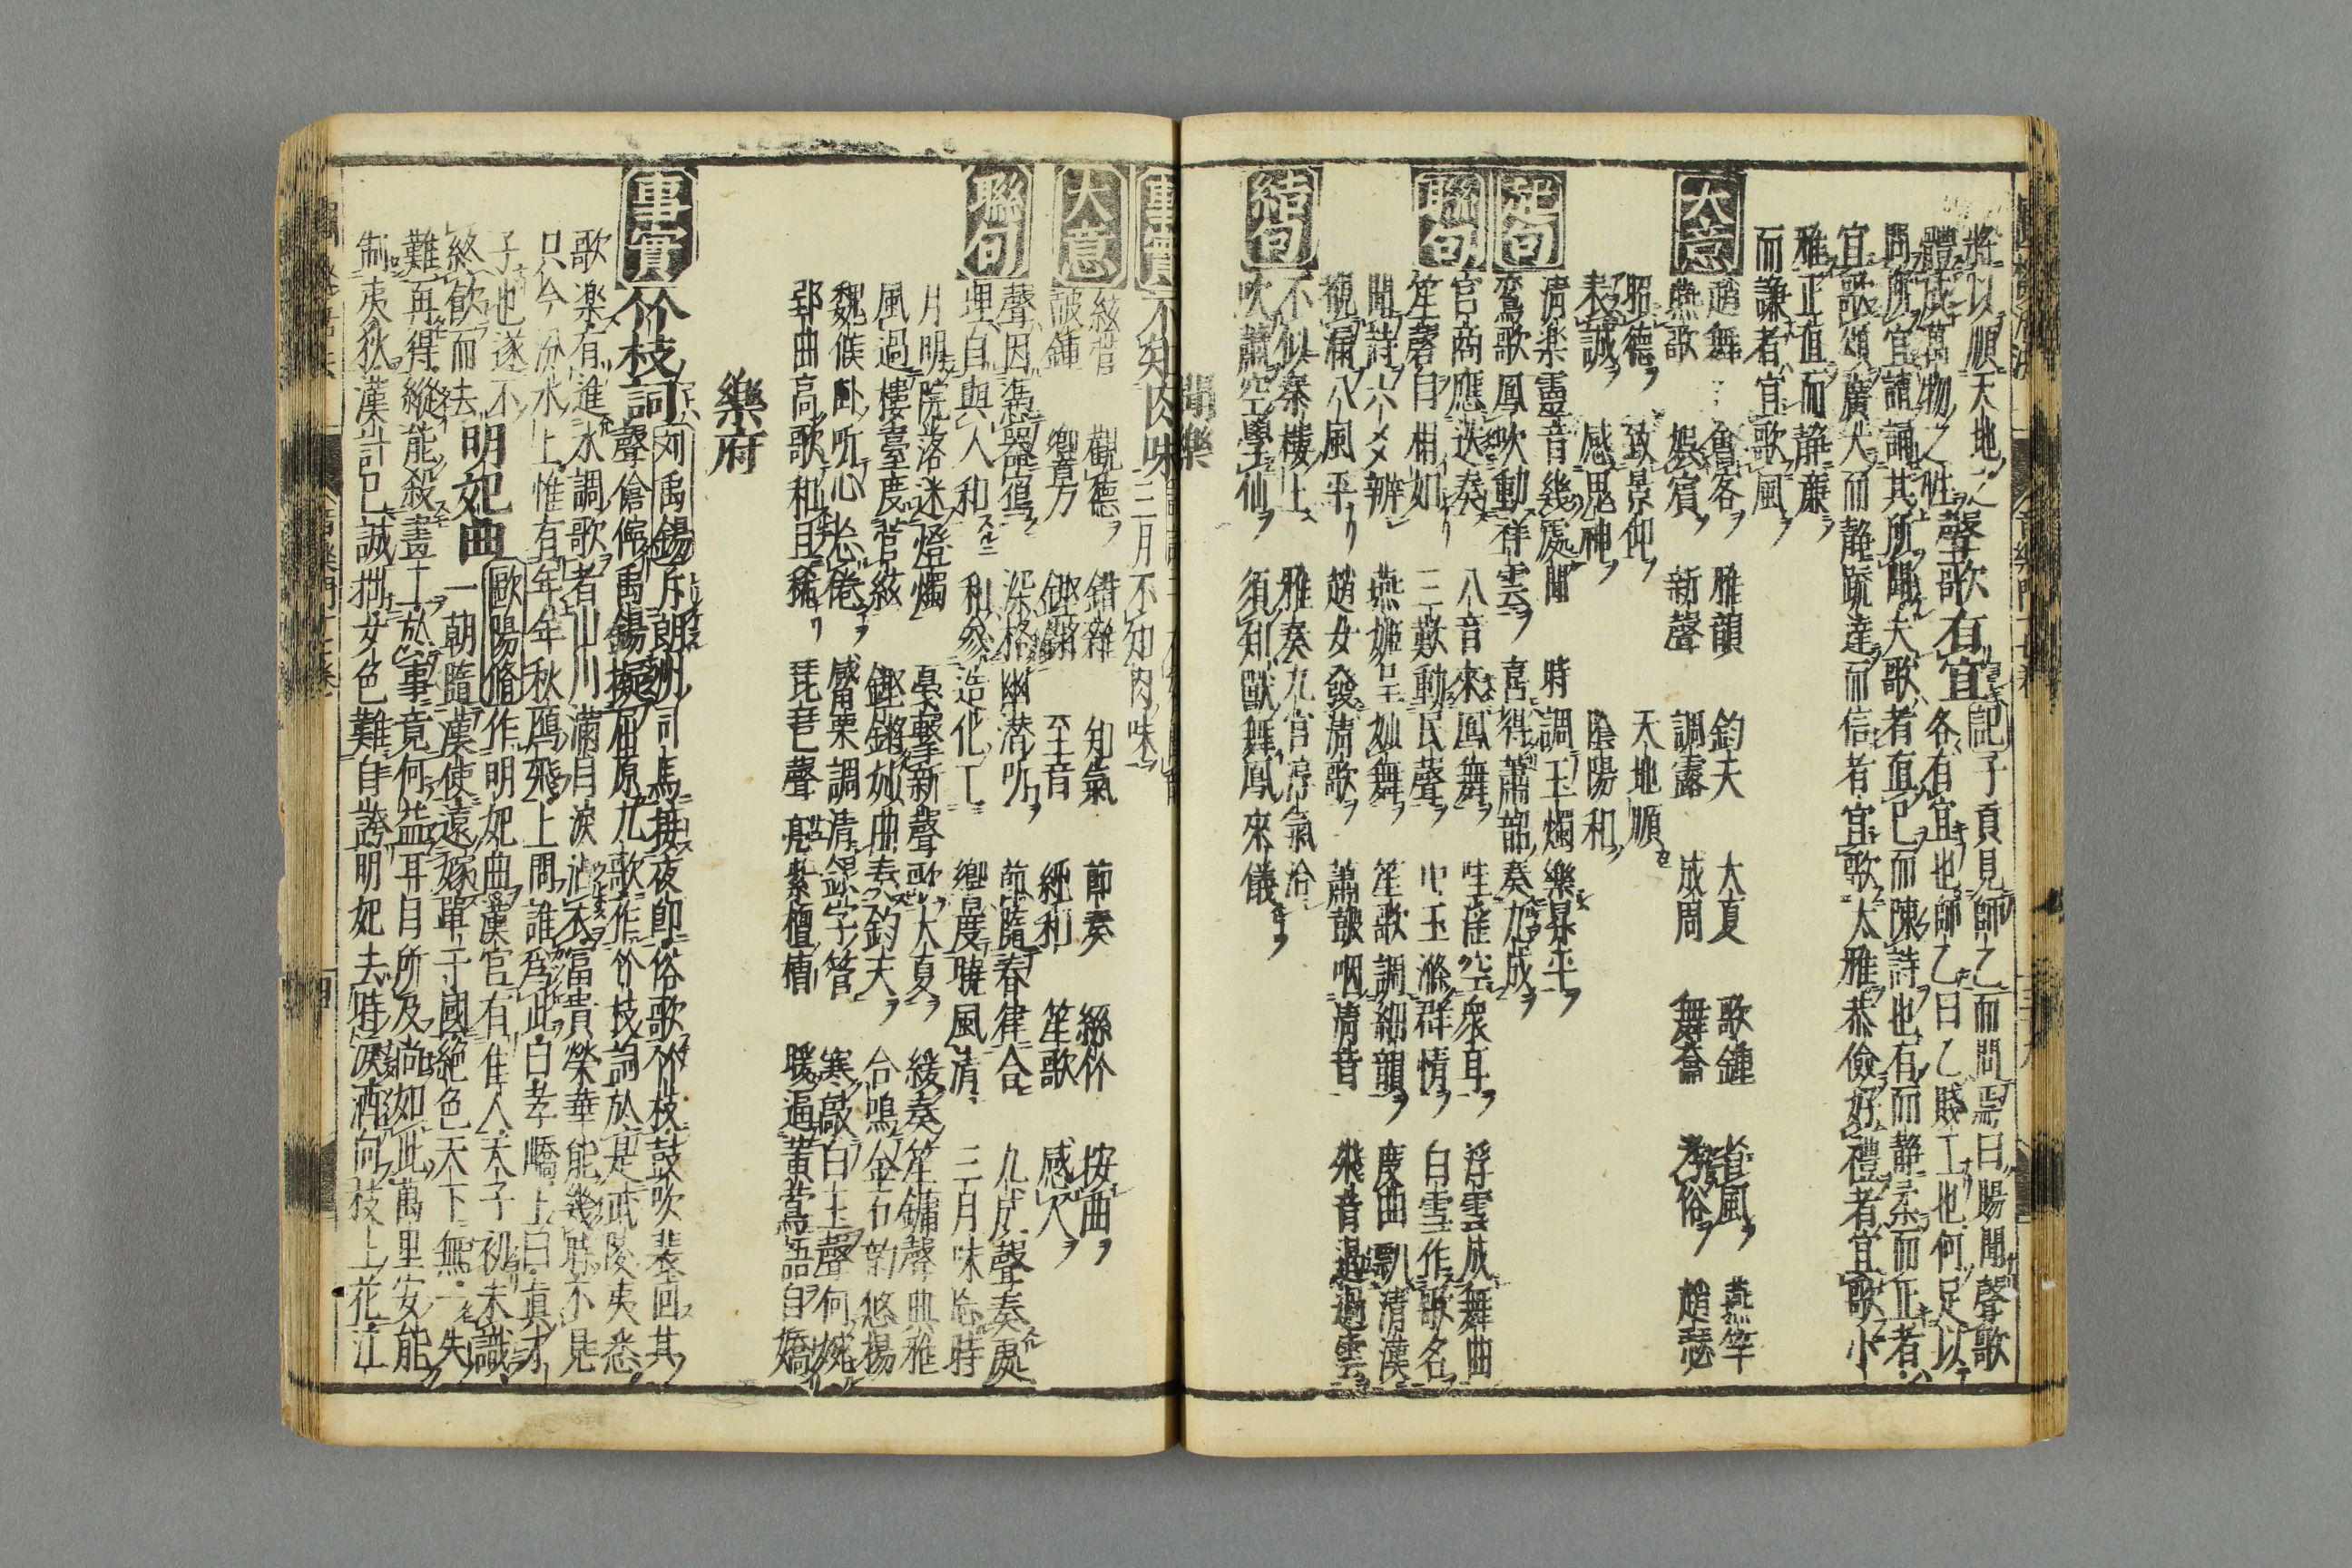 將以順天地之
體成萬物之性聲歌有宜記子貢見師乙而問焉曰賜聞聲歌
各有宜也師乙曰乙賤工也何足以
問所宜請誦其所聞夫歌者直己而陳詩也有而静柔而正者
宜歌頌廣大而静疏達而信者宜歌大雅恭儉好禮者宜歌小
雅正直而静廉
而謙者宜歌風
大意
趙舞 魯客 雅韻 鈞天 大夏 歌鍾 省風 燕竿
燕歌 娯賓 新聲 調露 成周 舞籥 移俗 趙瑟
昭德 致景仰 天地順
表誠 感鬼神 陰陽和
起句
清楽靈音幾處聞 時調玉燭樂昇平
鸞歌鳳吹動祥雲 喜得蕭韶奏九成
聯句
宮商應迭奏 八音來鳳舞 哇淫空衆耳 浮雲成舞曲
笙磬自相如 三歎動民聲 玉滌群情 白雪作歌名
聞詩六乄辨 燕姬呈妙舞 笙歌調細韻 度曲飄清漢
觀漏八風平 趙女發清歌 蕭鼓咽清音 飛音遏過雲
結句
不似秦樓上 雅奏九宮淳氣洽
吹蕭空學仙 須知獸舞鳳來儀
聞樂
事實
不知肉味 三月不知肉味
大意
絃管 觀德 錯雜 知氣 節奏 絲竹 按曲
皷鍾 嚮方 鏗鏘 至音 純和 笙歌 感人
聯句
聲因雋器鳴 深格幽潜听 節隨春律合 九成聲奏處
理自與人和 和參造化工 響度曉風清 三月味忘時
月明院落迷燈燭 憂擊新聲歌大夏 緩奏笙鏞聲典雅
風過樓臺度管絃 鏗鏘妙曲奏鈞天 合鳴金石韵悠揚
魏候卧听心忘倦 觱栗調清銀字管 寒敲白玉聲何婉
郢曲高歌和且稀 琵琶聲亮紫檀槽 暖逼黄鶯語自嬌
樂府
事實
竹枝詞 刘禹錫 斥朗州司馬接夜郎俗歌竹枝鼓吹裴回其
聲傖儜禹錫擬屈原九歌作竹枝詞於是武陵夷悉
歌楽有進水調歌者山川滿目淚沾衣富貴榮華能幾時不見
只今汾水上惟有年年秋鴈飛上問誰為此曰李嶠上曰真才
子也遂不
終飲而去 明妃曲 歐陽脩 作明妃曲漢宮有佳人天子初未識
一朝隨漢使遠嫁單于國絶色天下無一失
難再得縱能殺畫工於事竟何益耳目所及尚如此萬里安能
制夷狄漢計已誠拙女色難自誇明妃去時淚洒向枝上花江